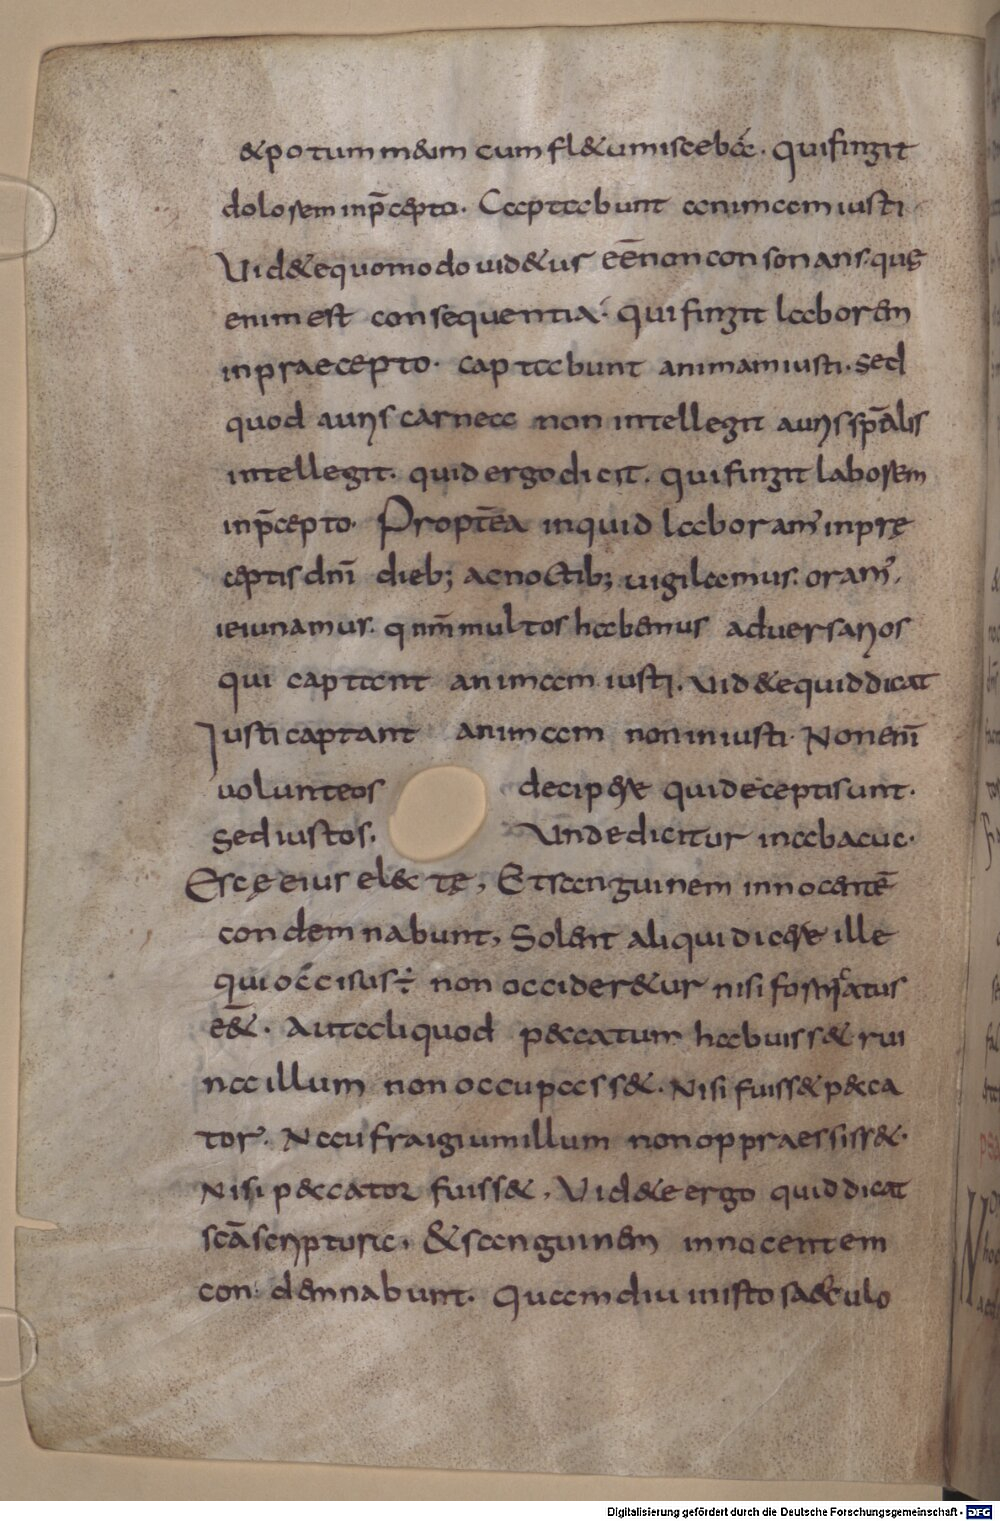 &potum meum cum fl&u miscebã. qui fingit
dolorem in p̄cepto. Captabunt animam iusti
Uid&e quomodo uid&ur eē non consonans. quę
enim est consequentia. qui fingit laborem
in praecepto. captabunt animam iusti. sed
quod auris carnea non intellegit auris sp̄alis
intellegit. quid ergo dicit. qui fingit laborem
in p̄cepto. Propt̄ea inquid laboram' in prę
ceptis dn̄i dieb; ac noctib; uigilamus. oram'.
ieiunamus. qnm̄ multos habemus adversarios
qui captant animam iusti. uid&e quid dicat
Iusti captant animam non iniusti. Non eni̅
volunteos decipere qui decepti sunt.
sed iustos. Unde dicitur in abacuc.
Escę eius electę, Et sanguinem innocentē
condemnabunt, Solent aliqui dicere ille
qui occisus ÷ non occider&ur nisi forniratus
e̅&. Aut aliquod peccatum habuiss& rui
na illum non occupass&. Nisi fuiss& pecca
tor. Naufraigium illum non oppraessiss&.
Nisi peccator fuiss&, Uid&e ergo quid dicat
scā scriptura. & sanguinem innocentem
condemnabunt. Quamdiu in isto saeculo
Digitalisierung gefördert durch die Deutsche Forschungsgemeinschaft - DFG